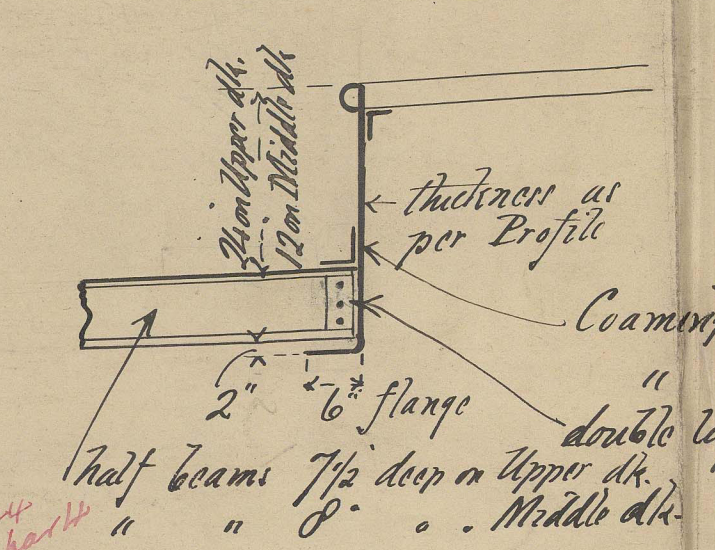 24 on Upper dk.
12 on Middle dk
thickness as
per Profile
Coaming
"
2"
6" flange
double
half beams 7½ deep on Upper dk.
" " 8" " " Middle dk.